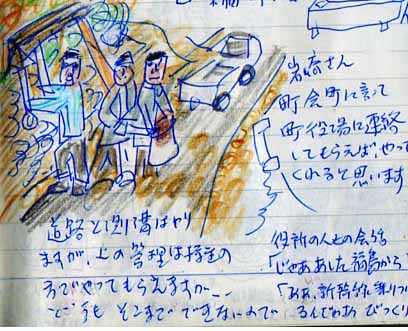 岩崎さん
町会町に言って
町役場に連絡
してもらえば、やって
くれると思います
道路と側溝はやり
ますが、上の管理は
方でやってもらえますか…
どうも そこまでできないので
役所の人との会話
「じゃああんた福島から
「ああ、新幹線
るんでわあ びっくり